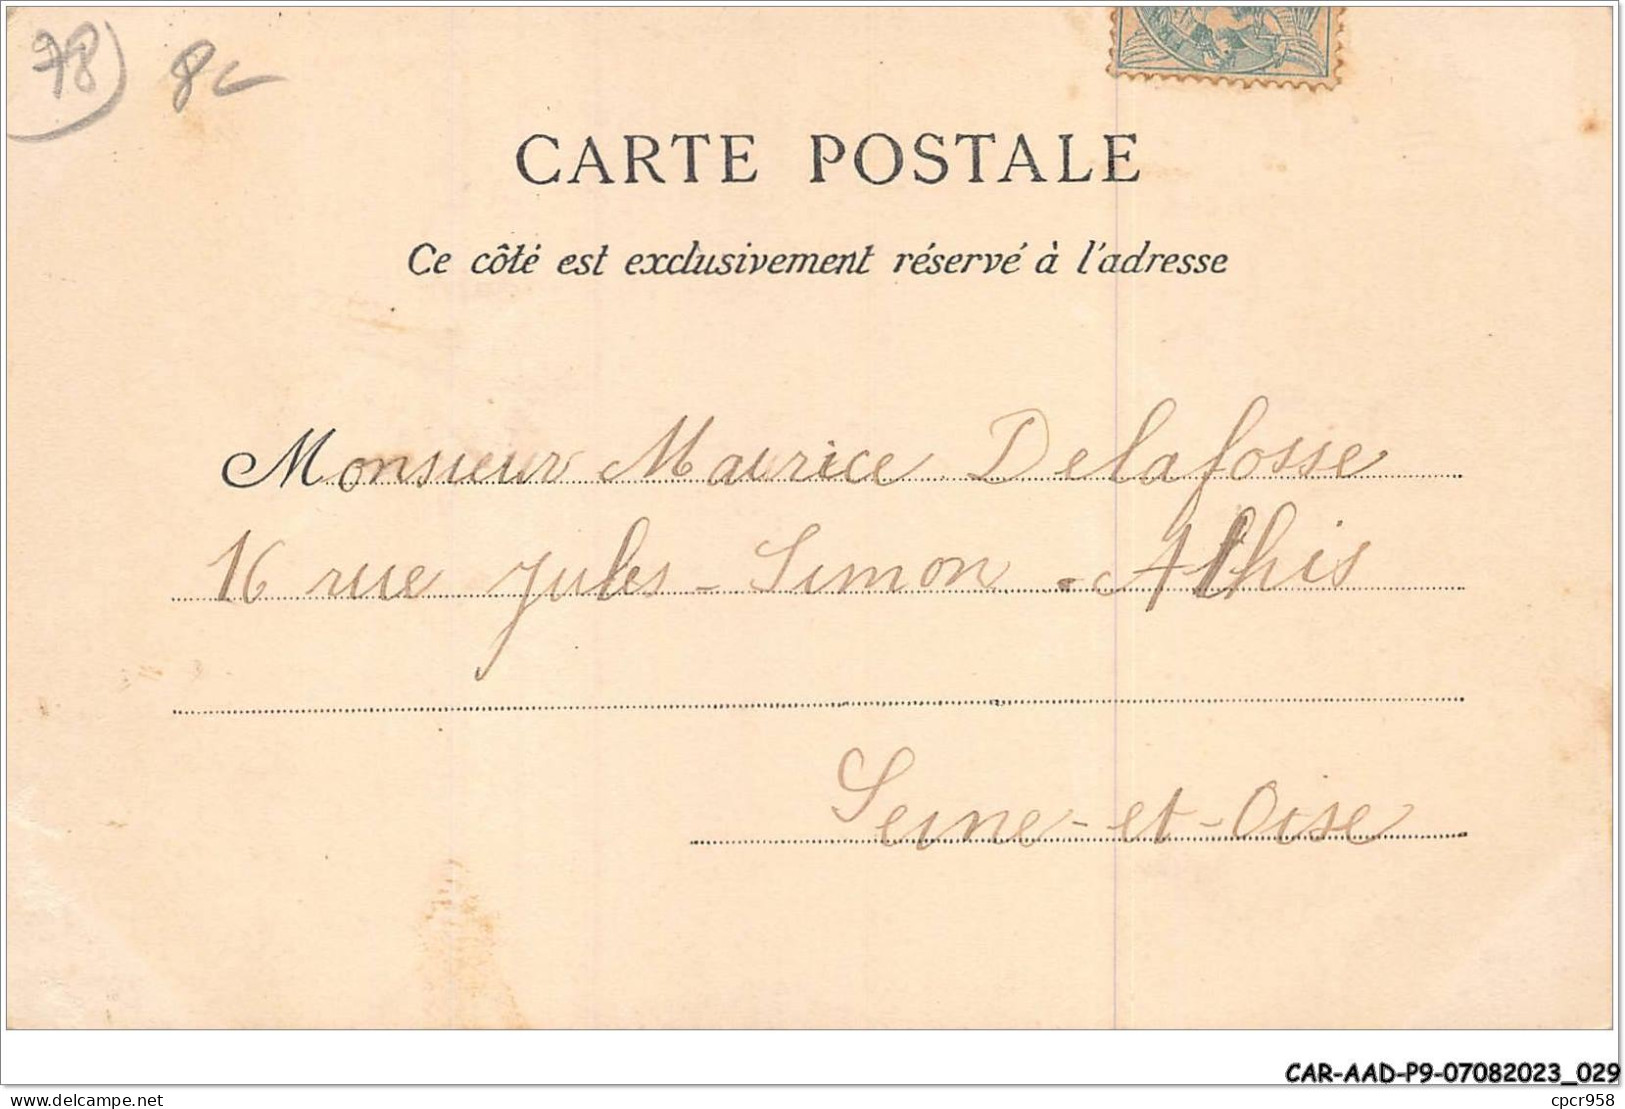 78) 8€
CARTE POSTALE
Ce côté est exclusivement réservé à l'adresse
Monsieur Maurice Delafosse
16 rue Jules-Simon. Athis
Seine-et-Oise
CAR-AAD-P9-07082023_029
cpcr958